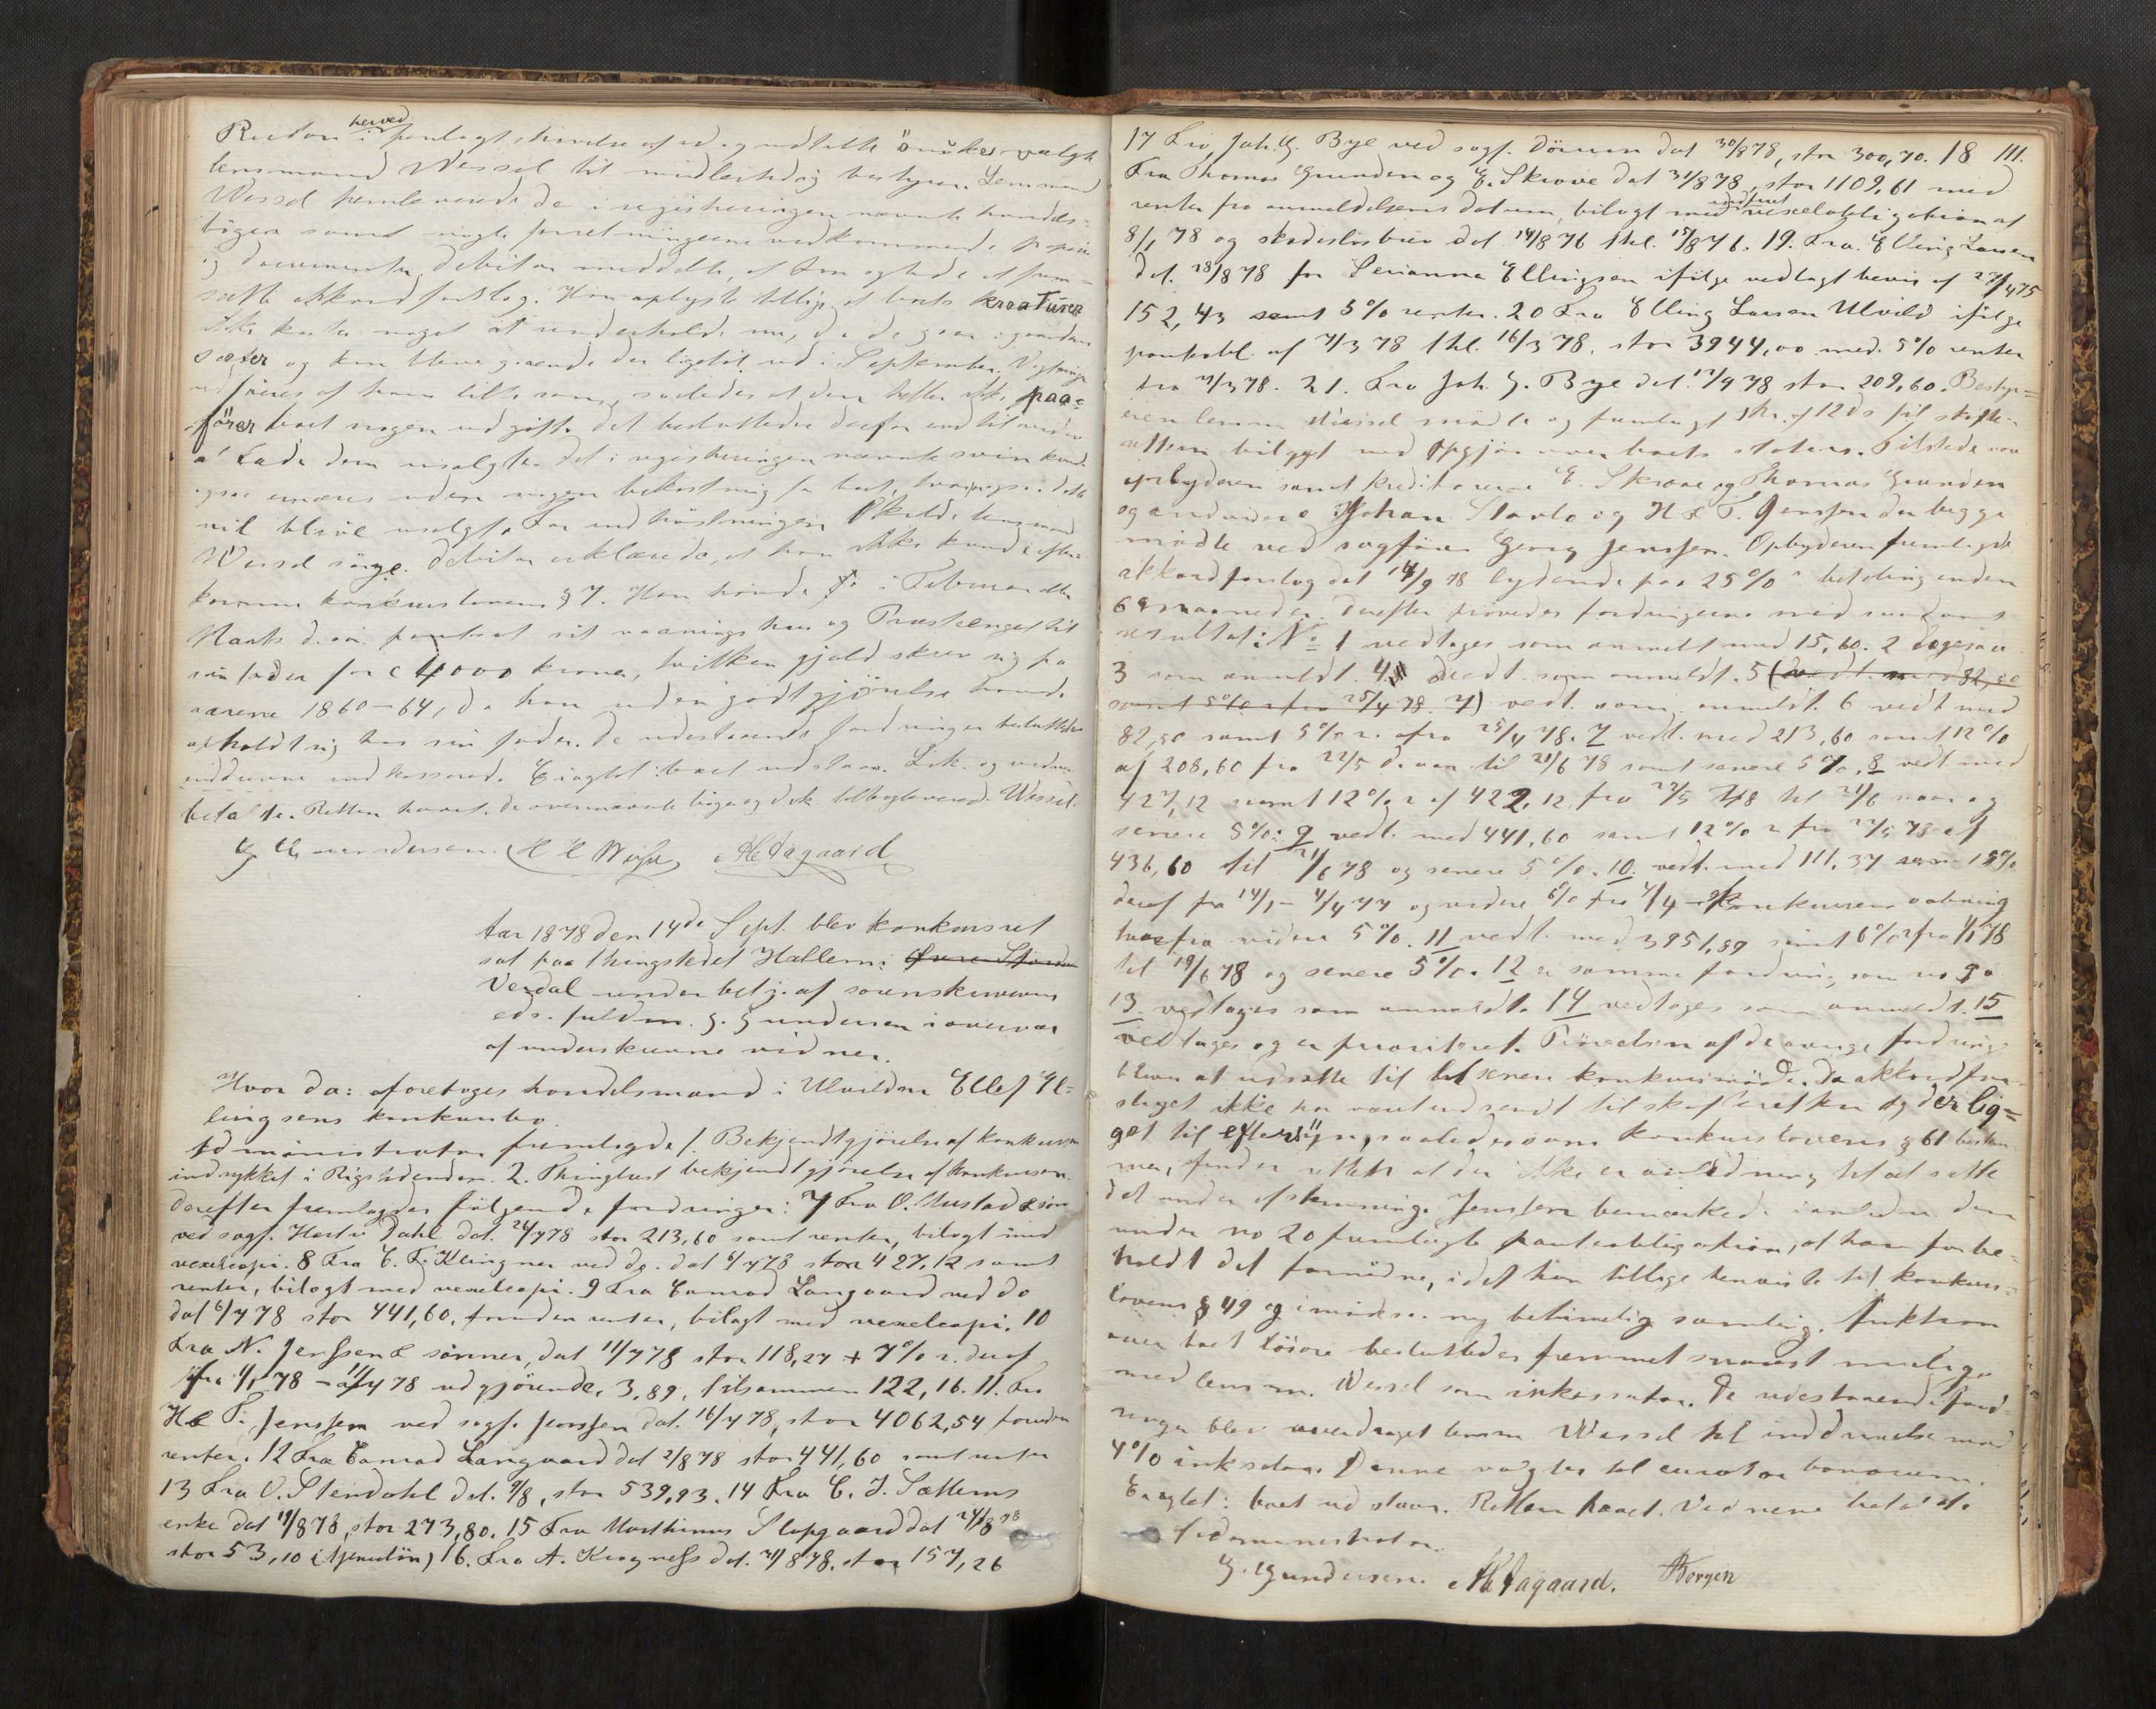 herved
lensmand Wessel til midlertidig bestyrer. Lensmand
Wessel henleverede de i registreringen nævnte handels=
bøger samt nogle forretningerne vedkommende papirer
og documenter. Debitor meddelte, at han agtede at frem=
sætte akkordforslag. Han oplyste tillige at boets kreaturer
ikke koster noget at underholde nu, da de gaar i
sæter og kan blive gaaende der ligetil ud i September.
udføres af hans lille søn, saaledes at den heller ikke paa=
fører boet nogen udgift. Det besluttedes derfor indtil videre
at lade dem usolgte. Det i registreringen nævnte svin kunde
ogsaa ernæres uden nogen bekostning for boet, hvorfor ogsaa dette
vil blive usolgt. For indhøstningen skulde lensmand
Wessel sørge. Debitor erklærede, at han ikke kunde efter=
komme konkurslovens § 7. Han havde i Februar eller
Marts d. aar pantsat sit vaaningshus og Præstenget til
sin fader for c 4000 kroner, hvilken gjæld skrev sig fra
aarene 1860–64, da han uden godtgjørelse havde
opholdt sig hos sin fader. De udestaaende fordringer besluttedes
inddrevne ved kassered. Eragtet: boet udstaar. Lik. og vidner
betalte. Retten hævet. De overnævnte bøger og dok tilbageleverede Wessel.
G Gundersen. AHaagaard
Aar 1878 den 14de Sept. blev konkursret
sat paa thingstedet Hallem i
Verdal under betj. af sorenskriverens
eds. fuldm. G. Gundersen i overvær
af underskrevne vidner.
Hvor da: aforetoges handelsmand i Ulvilden Ellef El=
lingsens konkursbo.
Administrator fremlagde 1. Bekjendtgjørelse af konkursen
indrykket i Rigstidenden. 2. Thinglæst bekjendtgjørelse af konkursen.
Derefter fremlagdes følgende fordringer: 7 Fra O. Mustad & søn
ved sagf. Hartv. Dahl dat. 26/7 78 stor 213,60 samt renter, bilagt med
vexelcopi. 8 Fra C. F. Klingner ved do. dat 6/7 78 stor 427,12 samt
renter, bilagt med vexelcopi. 9 Fra Conrad Langaard ved do
dat 6/7 78 stor 441,60, foruden renter, bilagt med vexelcopi. 10
Fra N. Jenssen & sønner, dat 11/7 78 stor 118,27 + 7% r. deraf
fra 1/1 78 – 11/7 78 udgjørende 3,89, tilsammen 122,16. 11. Fra
H & F. Jenssen ved sagf. Jenssen dat. 16/7 78, stor 4062,54 foruden
renter. 12 Fra Conrad Langaard dat 2/8 78 stor 441,60 samt renter
13 Fra O. Stendahl dat. 9/8, stor 539,93. 14 Fra C. J. Sættems
enke dat 19/8 78, stor 273,80. 15 Fra Marthinus Slapgaard dat 24/8 78
stor 53,10 (tjenerløn) 16. Fra A. Krogness dat. 31/8 78, stor 157,26
17 Fra Joh. G. Bye ved sagf. Dørum dat 30/8 78, stor 300,70. 18
Fra Thomas Grunden og E. Skrove dat 31/8 78, stor 1109,61 med
renter fra anmeldelsens datum, bilagt med vexelobligation af
8/1 78 og skadesløsbrev dat 14/8 76 thl. 15/8 76. 19. Fra Elling Larsen
dat. 28/8 78 for Serianna Ellingsen ifølge vedlagt bevis af 27/4 75
152,43 samt 5% renter. 20 Fra Elling Larsen Ulvild ifølge
pantobl. af 7/3 78 thl. 16/3 78, stor 3944,00 med 5% renter
fra 7/3 78. 21. Fra Joh. G. Bye dat. 12/9 78 stor 209,60. Besty=
reren lensm. Wessel mødte og fremlagt skr. af 12ds til skifte=
retten bilagt med opgjør over boets status. Tilstede var
opbyderen samt kreditorerne E. Skrove og Thomas Grunden
og endvidere Johan Stavlo og H & F. Jenssen der begge
mødte ved sagfører Georg Jenssen. Opbyderen fremlagde
akkordforslag dat 14/9 78 lydende paa 25% betaling inden
6 maaneder. Derefter prøvedes fordringerne med saadant
resultat: No 1 vedtages som anmeldt med 15,60. 2 ligesaa
3 som anmeldt. 4 vedt. som anmeldt. 5 (vedt. med 82,50
samt 5% r. fra 25/4 78. 7) vedt. som anmeldt. 6 vedt. med
82,50 samt 5% r. fra 25/4 78. 7 vedt. med 213,60 samt 12%
af 208,60 fra 22/5 d. aar til 21/6 78 samt senere 5%. 8 vedt. med
427,12 samt 12% r. af 422,12 fra 22/5 78 til 21/6 og
senere 5%. 9 vedt. med 441,60 samt 12% r fra 22/5 78 af
436,60 til 21/6 78 og senere 5%. 10. vedt. med 111,37
deraf fra og videre 6% fra konkursens aabning
hvorfra videre 5%. 11 vedt. med 3951,89 samt 6% r fra 1/1 78
til 19/6 78 og senere 5%. 12 er samme fordring som no 9.
13. vedtages som anmeldt. 14 vedtages som anmeldt. 15
vedtages og er prioriteret. Prøvelsen af de øvrige fordringer
bliver at udsætte til et senere konkursmøde. Da akkordfor=
slaget ikke har været indsendt til skifteretten og der lig=
get til eftersyn, saaledes som konkurslovens § 61 bestem=
mer, finder retten at der ikke er anledning til at sætte
det under afstemning. Jenssen bemærkede i anledn. den
under no 20 fremlagte pantobligation, at han forbe=
holdt det fornødne, idet han tillige henviste til konkurs=
lovens § 49 og imødesaa ny betimelig samling. Auktion
over boets løsøre besluttedes fremmet snarest muligt
med lensm. Wessel som inkassator. De udestaaende ford=
ringer blev overdraget lensm Wessel til inddrivelse mod
4% inksalær. Denne valgtes til curator bonorum.
Eragtet: boet udstaar. Retten hævet. Vidnerne betalt af
administrator.
G. Gundersen. AHaagaard. Borgen